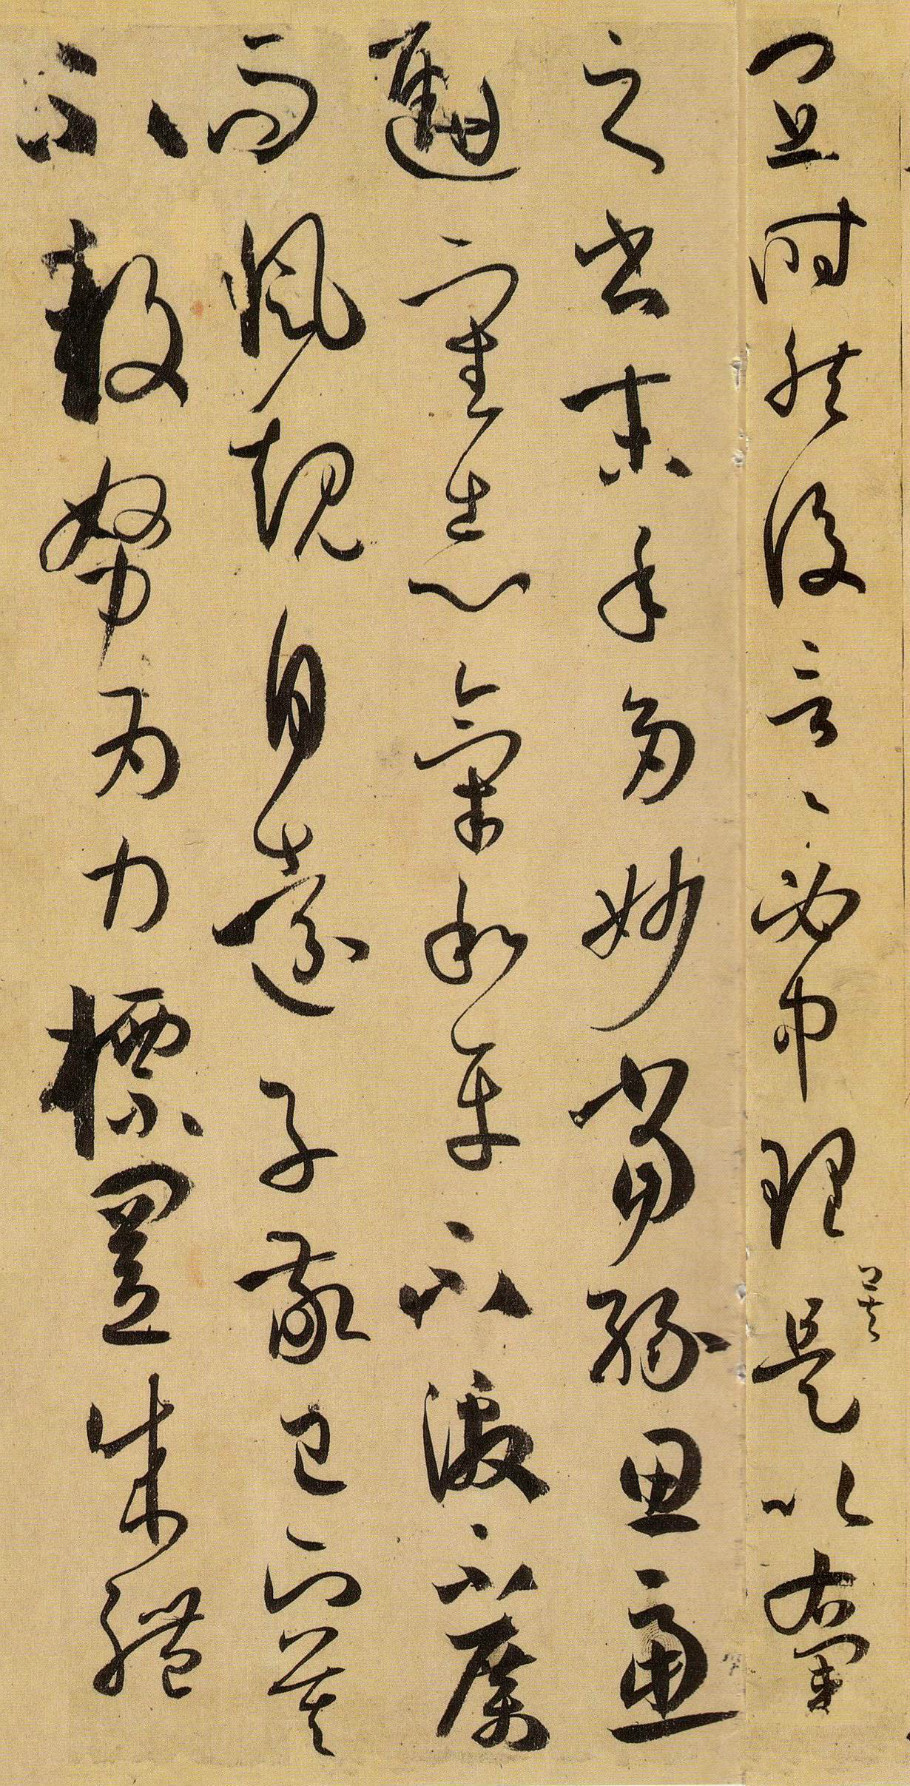 宜時然後言〻必中理矣是以右軍
之書末年多妙當緣思慮
通審志氣和平不激不厲
而風規自遠子敬已下莫
不鼓努為力標置成體